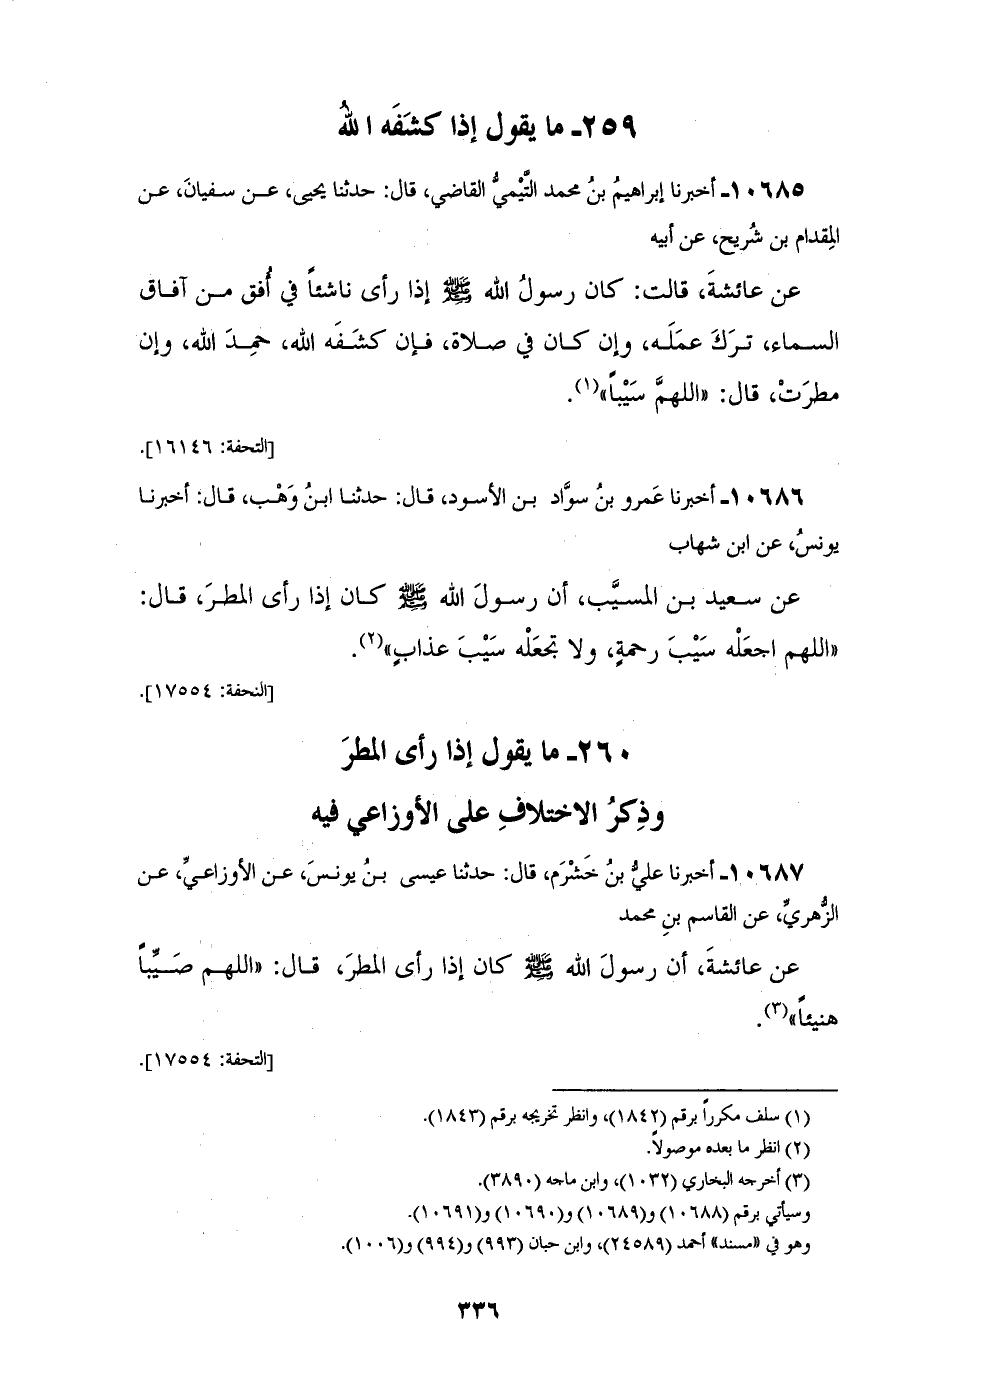 ٢٥٩ـ ما يقول إذا كشَفَه اللهُ
١٠٦٨٥ـ أخبرنا إبراهيمُ بنُ محمد التَّيْميُّ القاضي، قال: حدثنا يحيى، عـن سـفيانَ، عـن
المِقدام بن شُريح، عن أبيه
عن عائشةَ، قالت: كان رسولُ الله ﷺ إذا رأى ناشئاً في أُفق مـن آفـاق
السـماء، تـرَكَ عمَلَـه، وإن كـان في صـلاة، فـإن كشَـفَه الله، حمِـدَ الله، وإن
مطرَتْ، قال: «اللهمَّ سَيْباً»(١).
[التحفة: ١٦١٤٦].
١٠٦٨٦ـ أخبرنا عَمرو بنُ سوَّاد بـن الأسود، قـال: حدثنـا ابنُ وَهْـب، قـال: أخبرنـا
يونسُ، عن ابن شهاب
عن سـعيد بـن المسـيَّب، أن رسـولَ الله ﷺ كـان إذا رأى المطـرَ، قـال:
«اللهم اجعَلْه سَيْبَ رحمةٍ، ولا تجعَلْه سَيْبَ عذابٍ»(٢).
[التحفة: ١٧٥٥٤].
٢٦٠ـ ما يقول إذا رأى المطرَ
وذِكرُ الاختلافِ على الأوزاعي فيه
١٠٦٨٧ـ أخبرنا عليُّ بنُ خَشْرَم، قال: حدثنا عيسى بـنُ يونـسَ، عـن الأوزاعـيِّ، عـن
الزُّهريِّ، عن القاسم بنِ محمد
عن عائشةَ، أن رسولَ الله ﷺ كان إذا رأى المطرَ، قـال: «اللهـم صَـيِّباً
هنيئاً»(٣).
[التحفة: ١٧٥٥٤].
(١) سلف مكرراً برقم (١٨٤٢)، وانظر تخريجه برقم (١٨٤٣).
(٢) انظر ما بعده موصولاً.
(٣) أخرجه البخاري (١٠٣٢)، وابن ماجه (٣٨٩٠).
وسيأتي برقم (١٠٦٨٨) و(١٠٦٨٩) و(١٠٦٩٠) و(١٠٦٩١).
وهو في «مسند» أحمد (٢٤٥٨٩)، وابن حبان (٩٩٣) و(٩٩٤) و(١٠٠٦).
٣٣٦